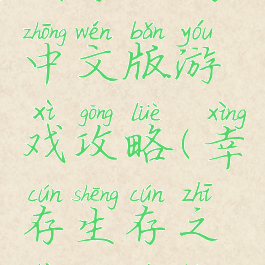 zhōng wén bǎn yóu
中文版游
xì gōng lüè xìng
戏攻略(幸
cún shēng cún zhī
存生存之